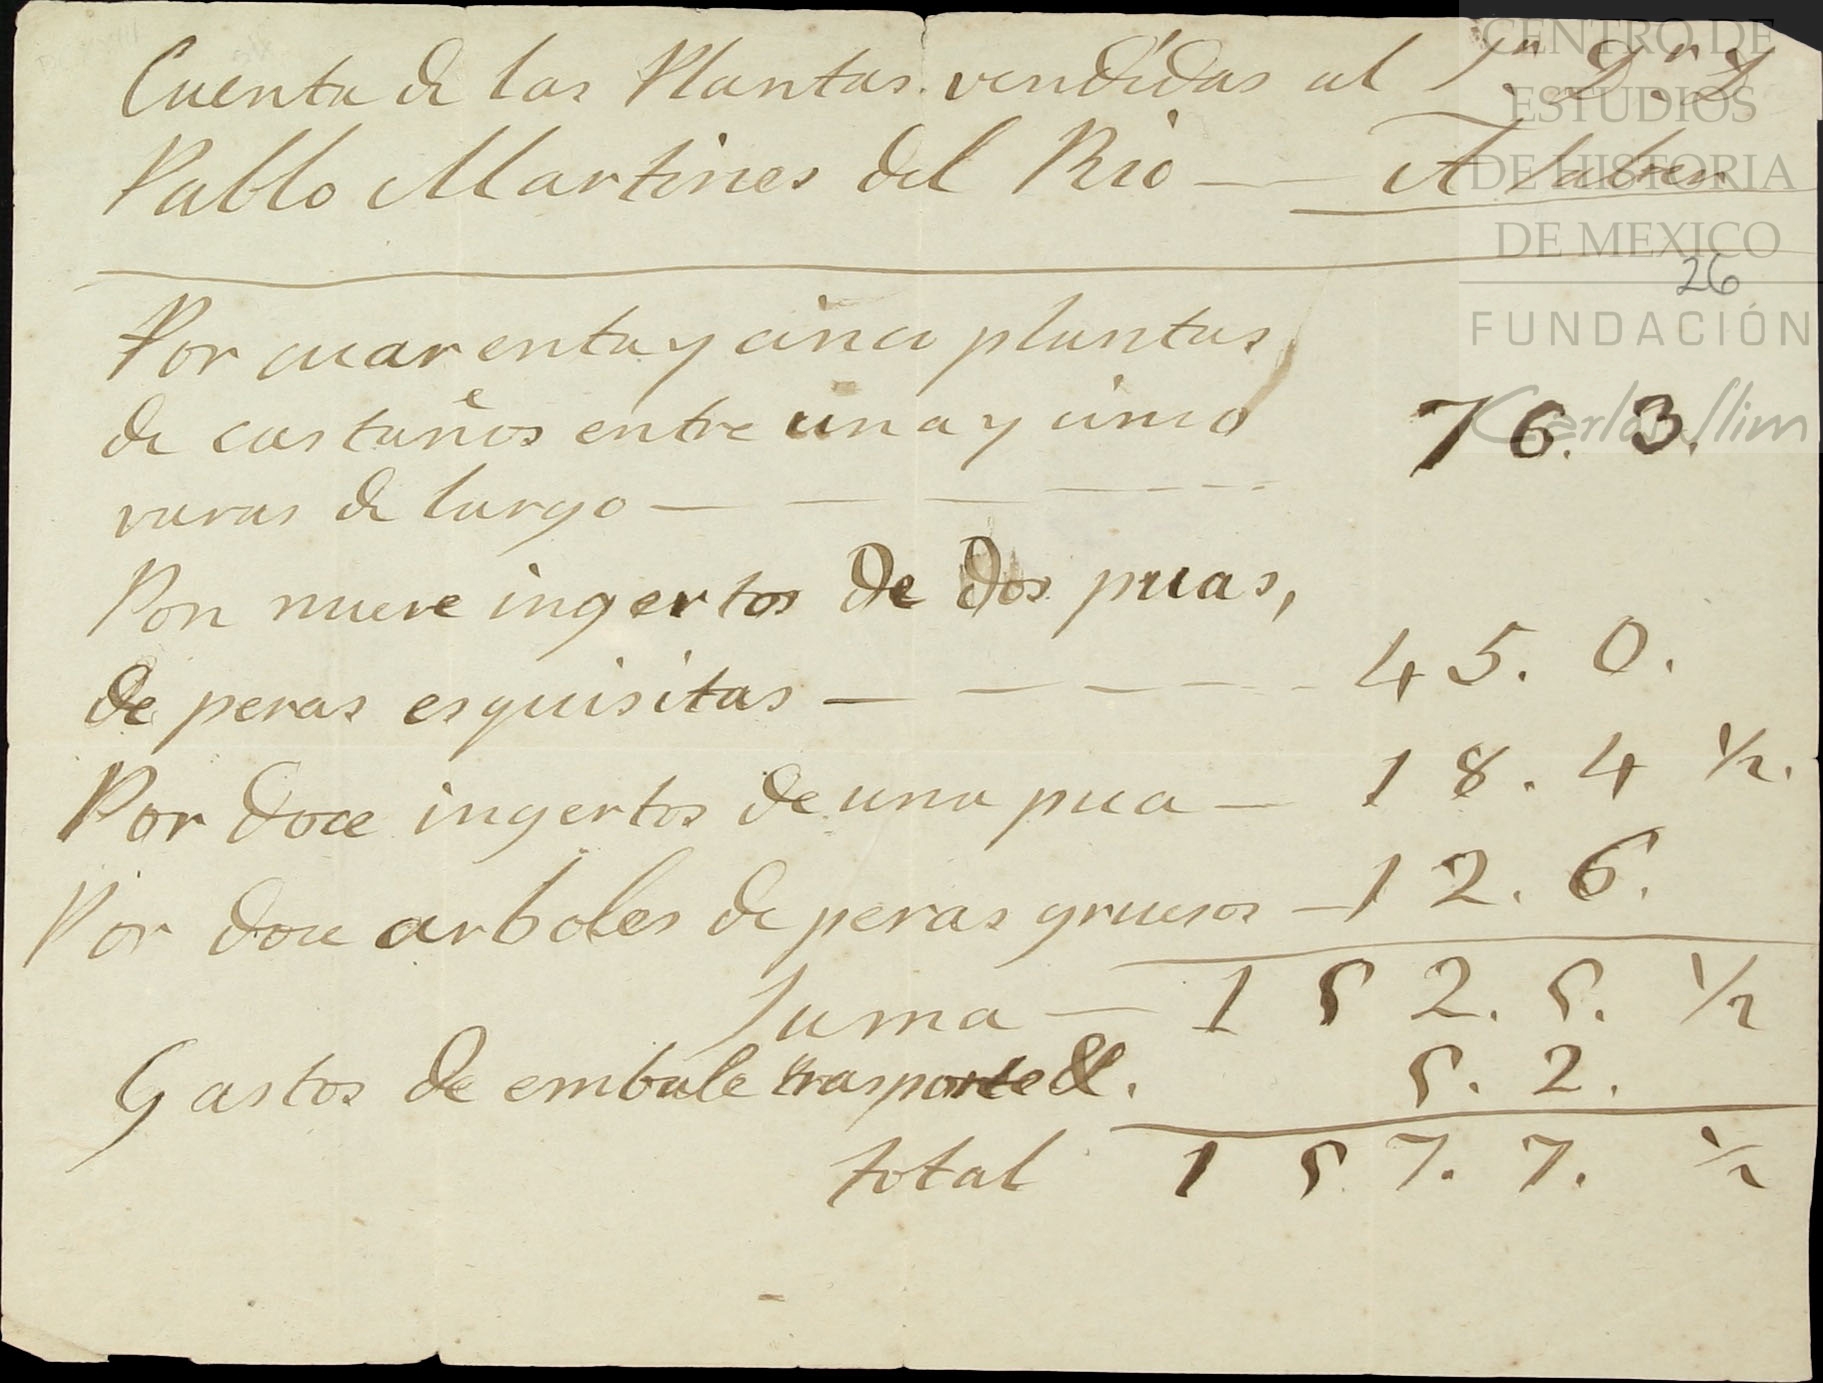 Cuenta de las Plantas vendidas al Sr. Dr. D.
Pablo Martines del Rio — A saber
26
Por cuarenta y cinco plantas
de castaños entre una y cinco
varas de largo — — — — 76. 3.
Por nueve ingertos de dos puas,
de peras esquisitas — — — — 45. 0.
Por doce ingertos de una pua — 18. 4 1/2.
Por doce arboles de peras gruesos — 12. 6.
Suma — 152. 5. 1/2
Gastos de embale trasporte &. 5. 2.
total 157. 7. 1/2
CENTRO DE
ESTUDIOS
DE HISTORIA
DE MEXICO
FUNDACIÓN
Carlos Slim